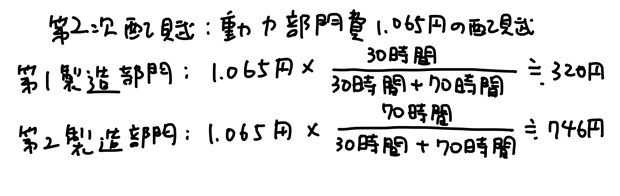 第2次配賦:動力部門費1.065円の配賦
第1製造部門:1.065円×30時間/30時間+70時間≒320円
第2製造部門:1.065円×70時間/30時間+70時間≒746円